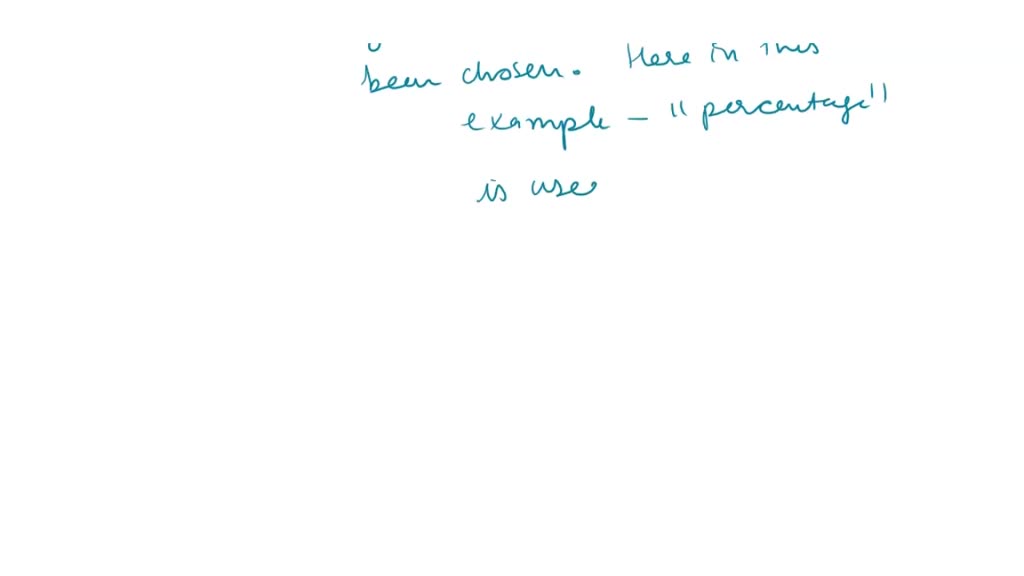 been chosen. Here in this
example - "percentage"
is use